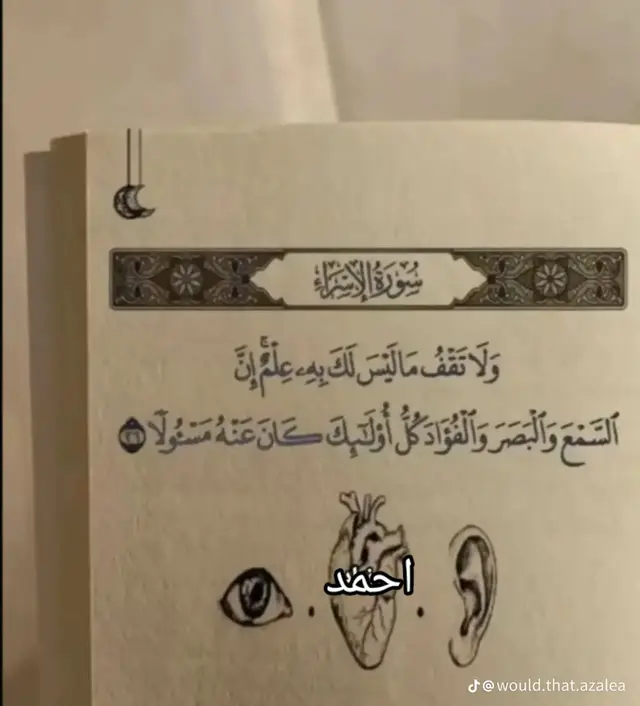 سُورَةُ الإِسْرَاءِ
وَلَا تَقْفُ مَا لَيْسَ لَكَ بِهِۦ عِلْمٌ ۚ إِنَّ
ٱلسَّمْعَ وَٱلْبَصَرَ وَٱلْفُؤَادَ كُلُّ أُو۟لَـٰٓئِكَ كَانَ عَنْهُ مَسْـُٔولًا ٣٦
احمد
@would.that.azalea